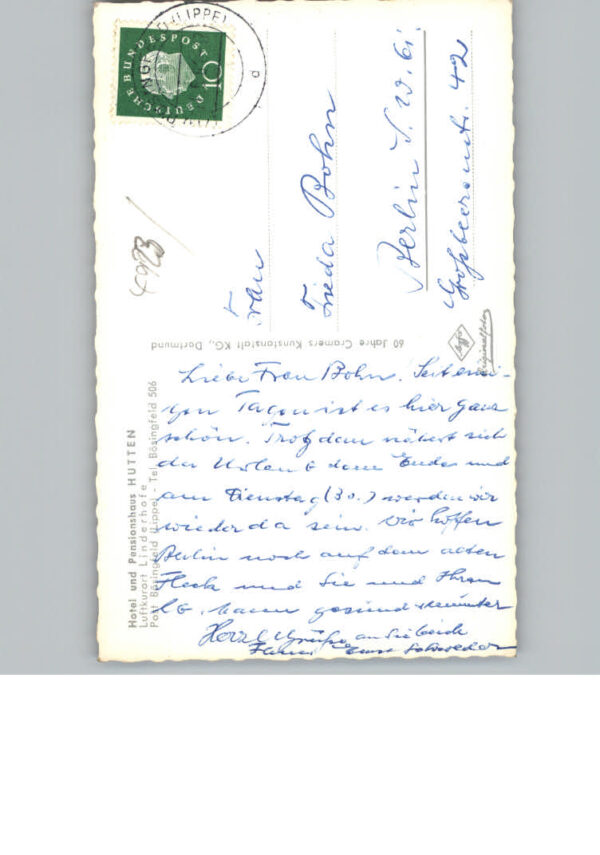 Liebe Frau Bohn. Seit eini-
gen Tagen ist es hier ganz
schön. Trotzdem nähert sich
der Urlaub dem Ende und
am Dienstag (30.) werden wir
wieder da sein. Wir hoffen
Berlin noch auf dem alten
Fleck und Sie und Ihren
lb. Mann gesund u. munter
Herzl. Grüße an Sie beide
Schroeder
Frau
Frieda Bohn
Berlin S.W. 61
Großbeerenstr. 42
DEUTSCHE BUNDESPOST
10
(LIPPE)
60 Jahre Cramers Kunstanstalt KG., Dortmund
Agfa
Originalfoto
Hotel und Pensionshaus HUTTEN
Luftkurort Linderhofe
Post Bösingfeld (Lippe) - Tel. Bösingfeld 506